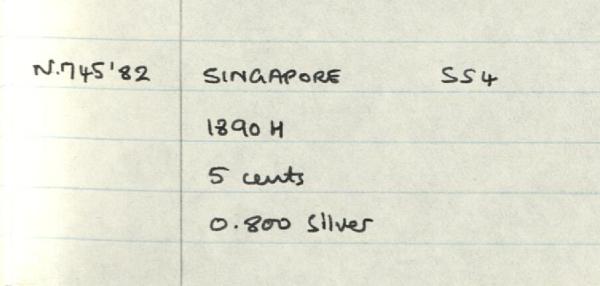 N.745'82 SINGAPORE SS4
1890 H
5 cents
0.800 silver